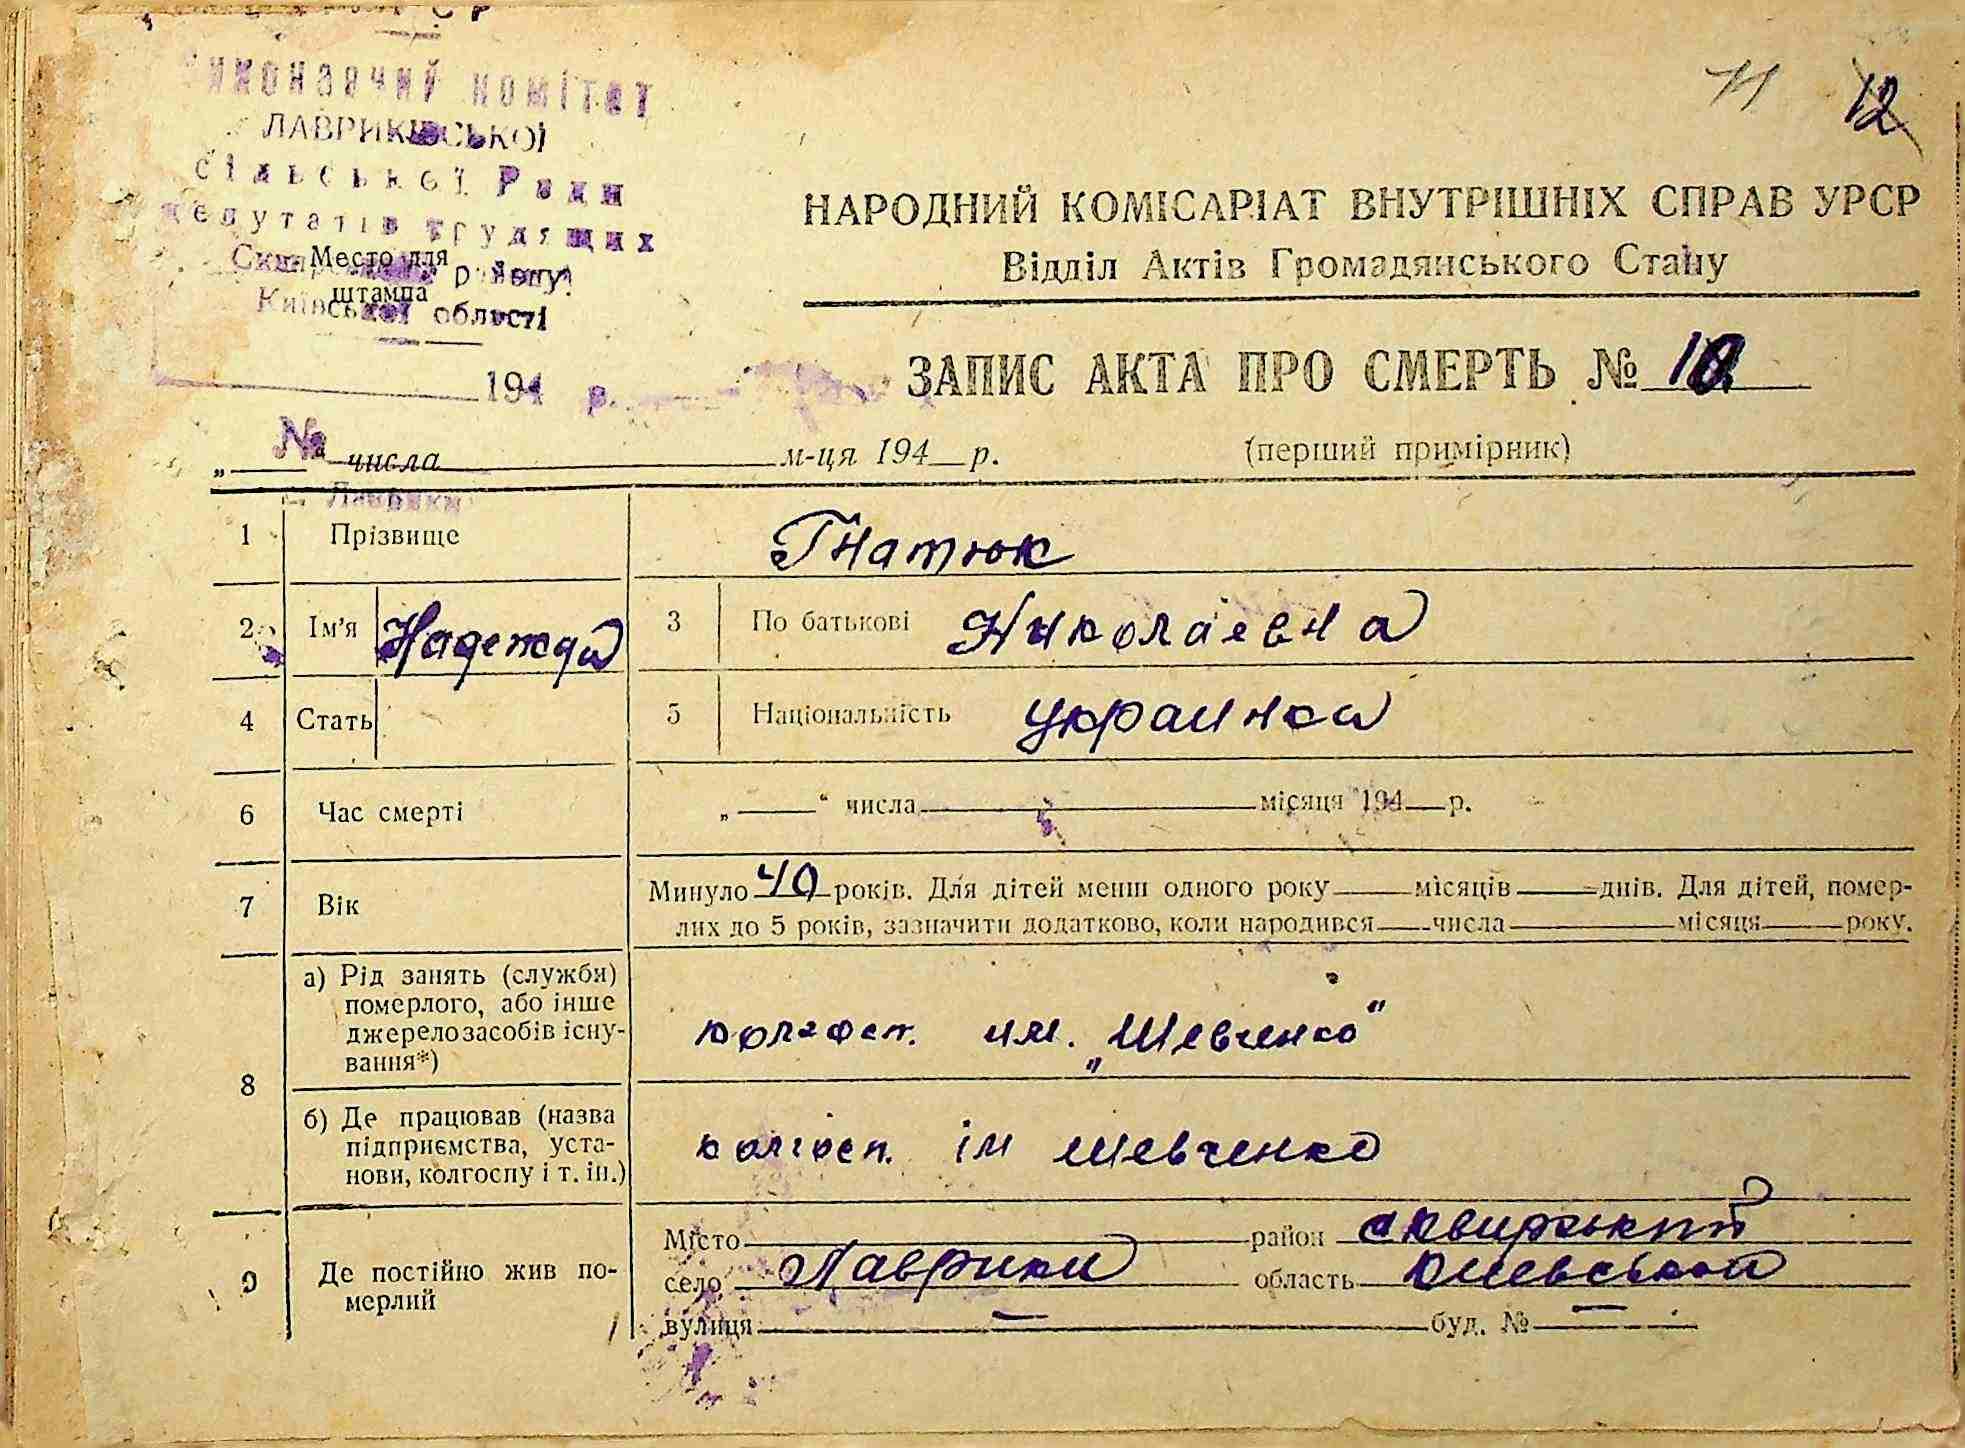 11 12
виконавчий комітет
ЛАВРИКІВСЬКОЇ
сільської Ради
депутатів трудящих
району
Київської області
Место для
штампа
194 р.
№
Лаврики
НАРОДНИЙ КОМІСАРІАТ ВНУТРІШНІХ СПРАВ УРСР
Відділ Актів Громадянського Стану
ЗАПИС АКТА ПРО СМЕРТЬ № 10
„ числа м-ця 194 р. (перший примірник)
1 Прізвище Гнатюк
2 Ім'я Надежда 3 По батькові Николаевна
4 Стать 5 Національність украинка
6 Час смерті „ “ числа місяця 194 р.
7 Вік Минуло 40 років. Для дітей менш одного року місяців днів. Для дітей, помер-
лих до 5 років, зазначити додатково, коли народився числа місяця року.
8 а) Рід занять (служби)
померлого, або інше
джерело засобів існу-
вання*)
колгосп. им. „Шевченко“
б) Де працював (назва
підприємства, уста-
нови, колгоспу і т. ін.)
колгосп. ім Шевченко
9 Де постійно жив по-
мерлий
Місто район сквирський
село Лаврики область Киевський
вулиця — буд. № —